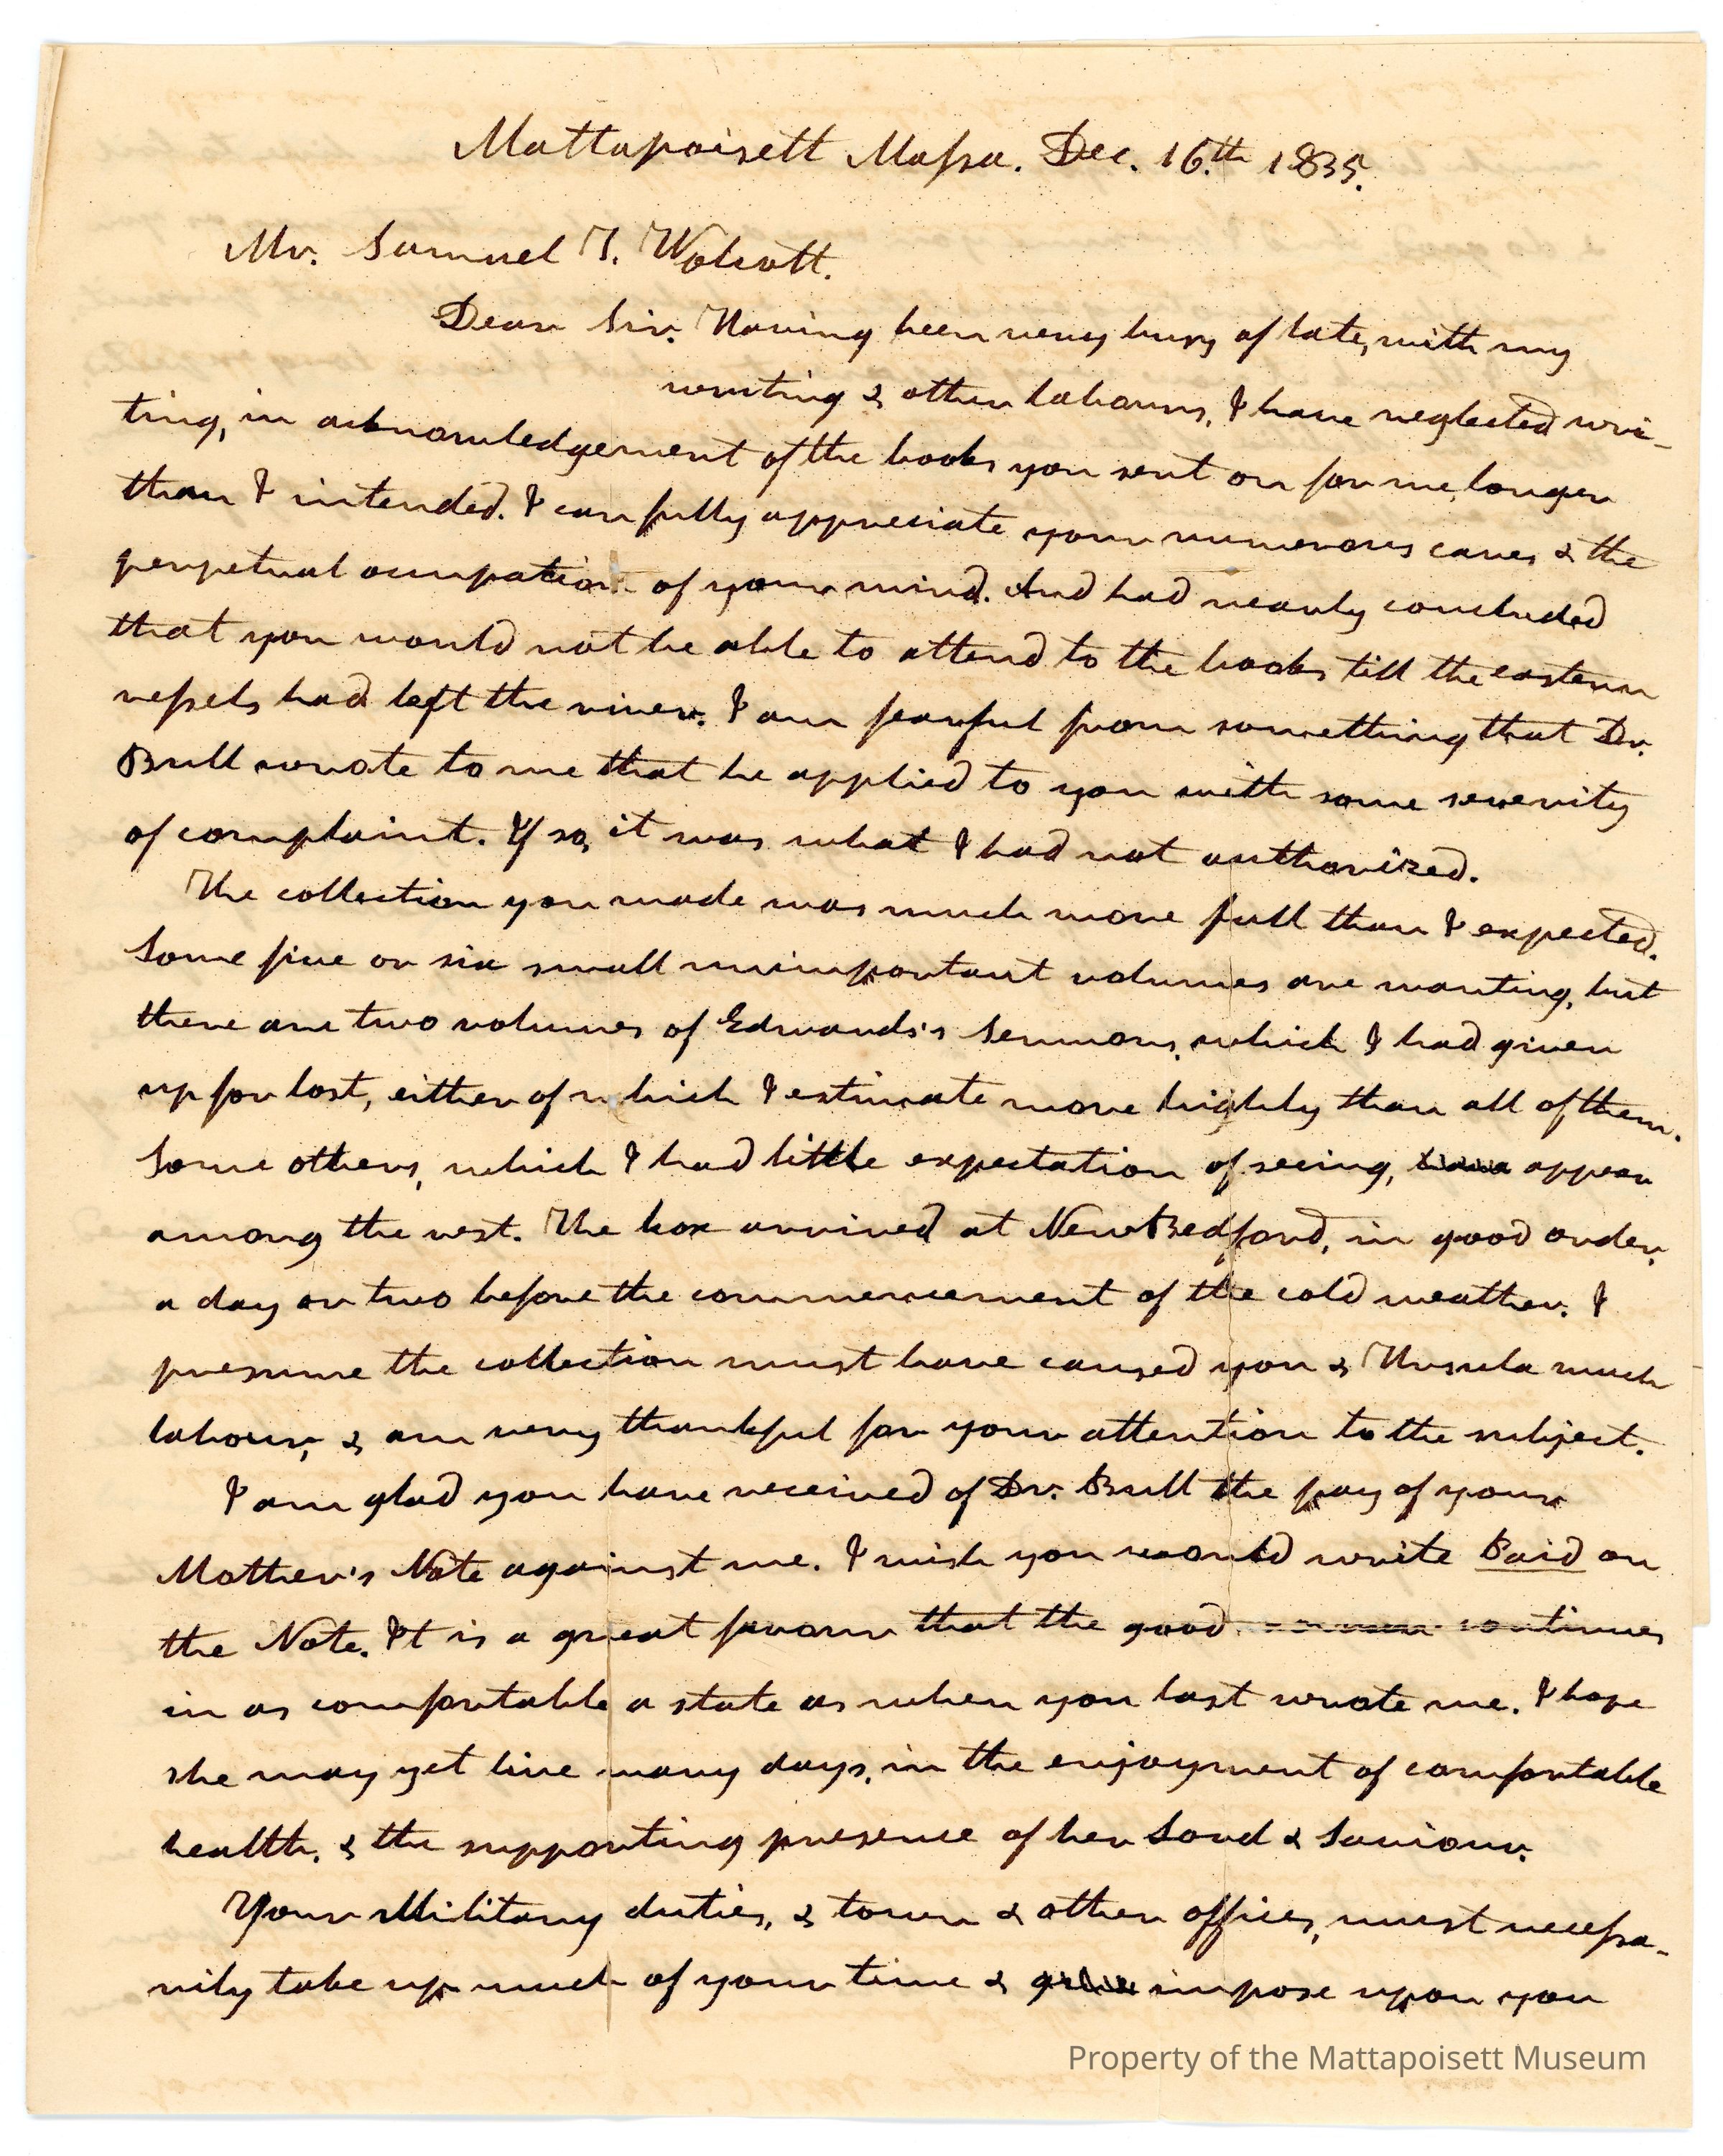 Mattapoisett Massa. Dec. 16th 1835.
Mr. Samuel T. Wolcott.
Dear Sir. Having been very busy of late, with my
writing & other labours, I have neglected wri-
ting, in acknowledgement of the books you sent on for me, longer
than I intended. I can fully appreciate your numerous cares & the
perpetual occupation of your mind. And had nearly concluded
that you would not be able to attend to the books till the eastern
vessels had left the river. I am fearful from something that Dr.
Bull wrote to me that he applied to you with some severity
of complaint. If so, it was what I had not authorized.
The collection you made was much more full than I expected.
Some five or six small unimportant volumes are wanting, but
there are two volumes of Edwards's Sermons, which I had given
up for lost, either of which I estimate more highly than all of them.
Some others, which I had little expectation of seeing, appear
among the rest. The box arrived at New Bedford, in good order,
a day or two before the commencement of the cold weather. I
presume the collection must have caused you & Ursula much
labour, & am very thankful for your attention to the subject.
I am glad you have received of Dr. Bull the pay of your
Mother's Note against me. I wish you would write Paid on
the Note. It is a great favour that the good continues
in as comfortable a state as when you last wrote me. I hope
she may yet live many days, in the enjoyment of comfortable
health, & the supporting presence of her Lord & Saviour.
Your Military duties, & town & other offices, must necessa-
rily take up much of your time & impose upon you
Property of the Mattapoisett Museum